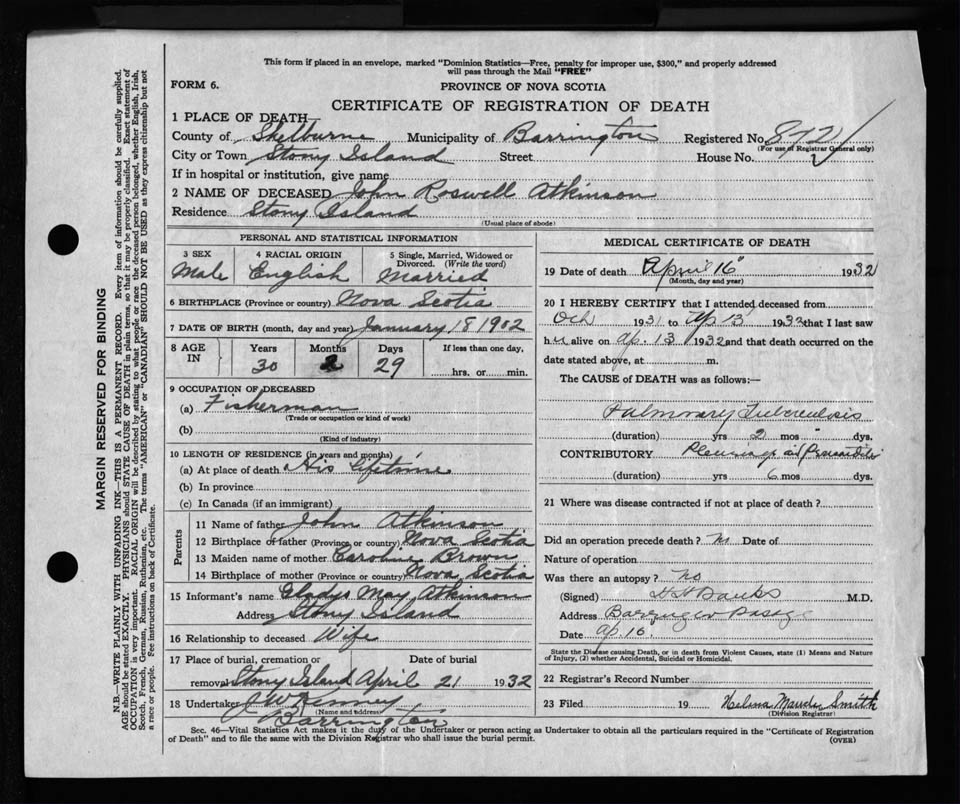 This form if placed in an envelope, marked "Dominion Statistics—Free, penalty for improper use, $300," and properly addressed
will pass through the Mail "FREE"
FORM 6.
PROVINCE OF NOVA SCOTIA
CERTIFICATE OF REGISTRATION OF DEATH
1 PLACE OF DEATH
County of Shelburne Municipality of Barrington Registered No. 872
(For use of Registrar General only)
City or Town Stony Island Street House No.
If in hospital or institution, give name
2 NAME OF DECEASED John Roswell Atkinson
Residence Stony Island
(Usual place of abode)
PERSONAL AND STATISTICAL INFORMATION
3 SEX Male
4 RACIAL ORIGIN English
5 Single, Married, Widowed or
Divorced. (Write the word)
Married
6 BIRTHPLACE (Province or country) Nova Scotia
7 DATE OF BIRTH (month, day and year) January 18 1902
8 AGE IN Years Months Days If less than one day,
30 2 29 hrs. or min.
9 OCCUPATION OF DECEASED
(a) Fisherman
(Trade or occupation or kind of work)
(b)
(Kind of industry)
10 LENGTH OF RESIDENCE (in years and months)
(a) At place of death His lifetime
(b) In province
(c) In Canada (if an immigrant)
Parents
11 Name of father John Atkinson
12 Birthplace of father (Province or country) Nova Scotia
13 Maiden name of mother Caroline Brown
14 Birthplace of mother (Province or country) Nova Scotia
15 Informant's name Gladys May Atkinson
Address Stony Island
16 Relationship to deceased Wife
17 Place of burial, cremation or Date of burial
removal Stony Island April 21 1932
18 Undertaker Kenny
(Name and address)
Barrington
MEDICAL CERTIFICATE OF DEATH
19 Date of death April 16" 1932
(Month, day and year)
20 I HEREBY CERTIFY that I attended deceased from
Och 1931 to Ap 13 1932 that I last saw
h alive on Ap. 13 1932 and that death occurred on the
date stated above, at m.
The CAUSE of DEATH was as follows:—
Pulmonary Tuberculosis
(duration) yrs 2 mos dys.
CONTRIBUTORY Pleurisy
(duration) yrs 6 mos. dys.
21 Where was disease contracted if not at place of death?
Did an operation precede death? Date of
Nature of operation
Was there an autopsy? no
(Signed) Banks M.D.
Address Barrington Passage
Date Ap 16.
State the Disease causing Death, or in death from Violent Causes, state (1) Means and Nature
of Injury, (2) whether Accidental, Suicidal or Homicidal.
22 Registrar's Record Number
23 Filed 19 Smith
(Division Registrar)
Sec. 46—Vital Statistics Act makes it the duty of the Undertaker or person acting as Undertaker to obtain all the particulars required in the "Certificate of Registration
of Death" and to file the same with the Division Registrar who shall issue the burial permit.
(OVER)
MARGIN RESERVED FOR BINDING
N.B.—WRITE PLAINLY WITH UNFADING INK—THIS IS A PERMANENT RECORD. Every item of information should be carefully supplied.
AGE should be stated EXACTLY. PHYSICIANS should STATE CAUSE OF DEATH in plain terms, so that it may be properly classified. Exact statement of
OCCUPATION is very important. RACIAL ORIGIN will be described by stating to what people or race the deceased person belonged, whether English, Irish,
Scotch, French, German, Russian, Ruthenian, etc. The terms "AMERICAN" or "CANADIAN" SHOULD NOT BE USED as they express citizenship but not
a race or people. Fee instructions on back of Certificate.